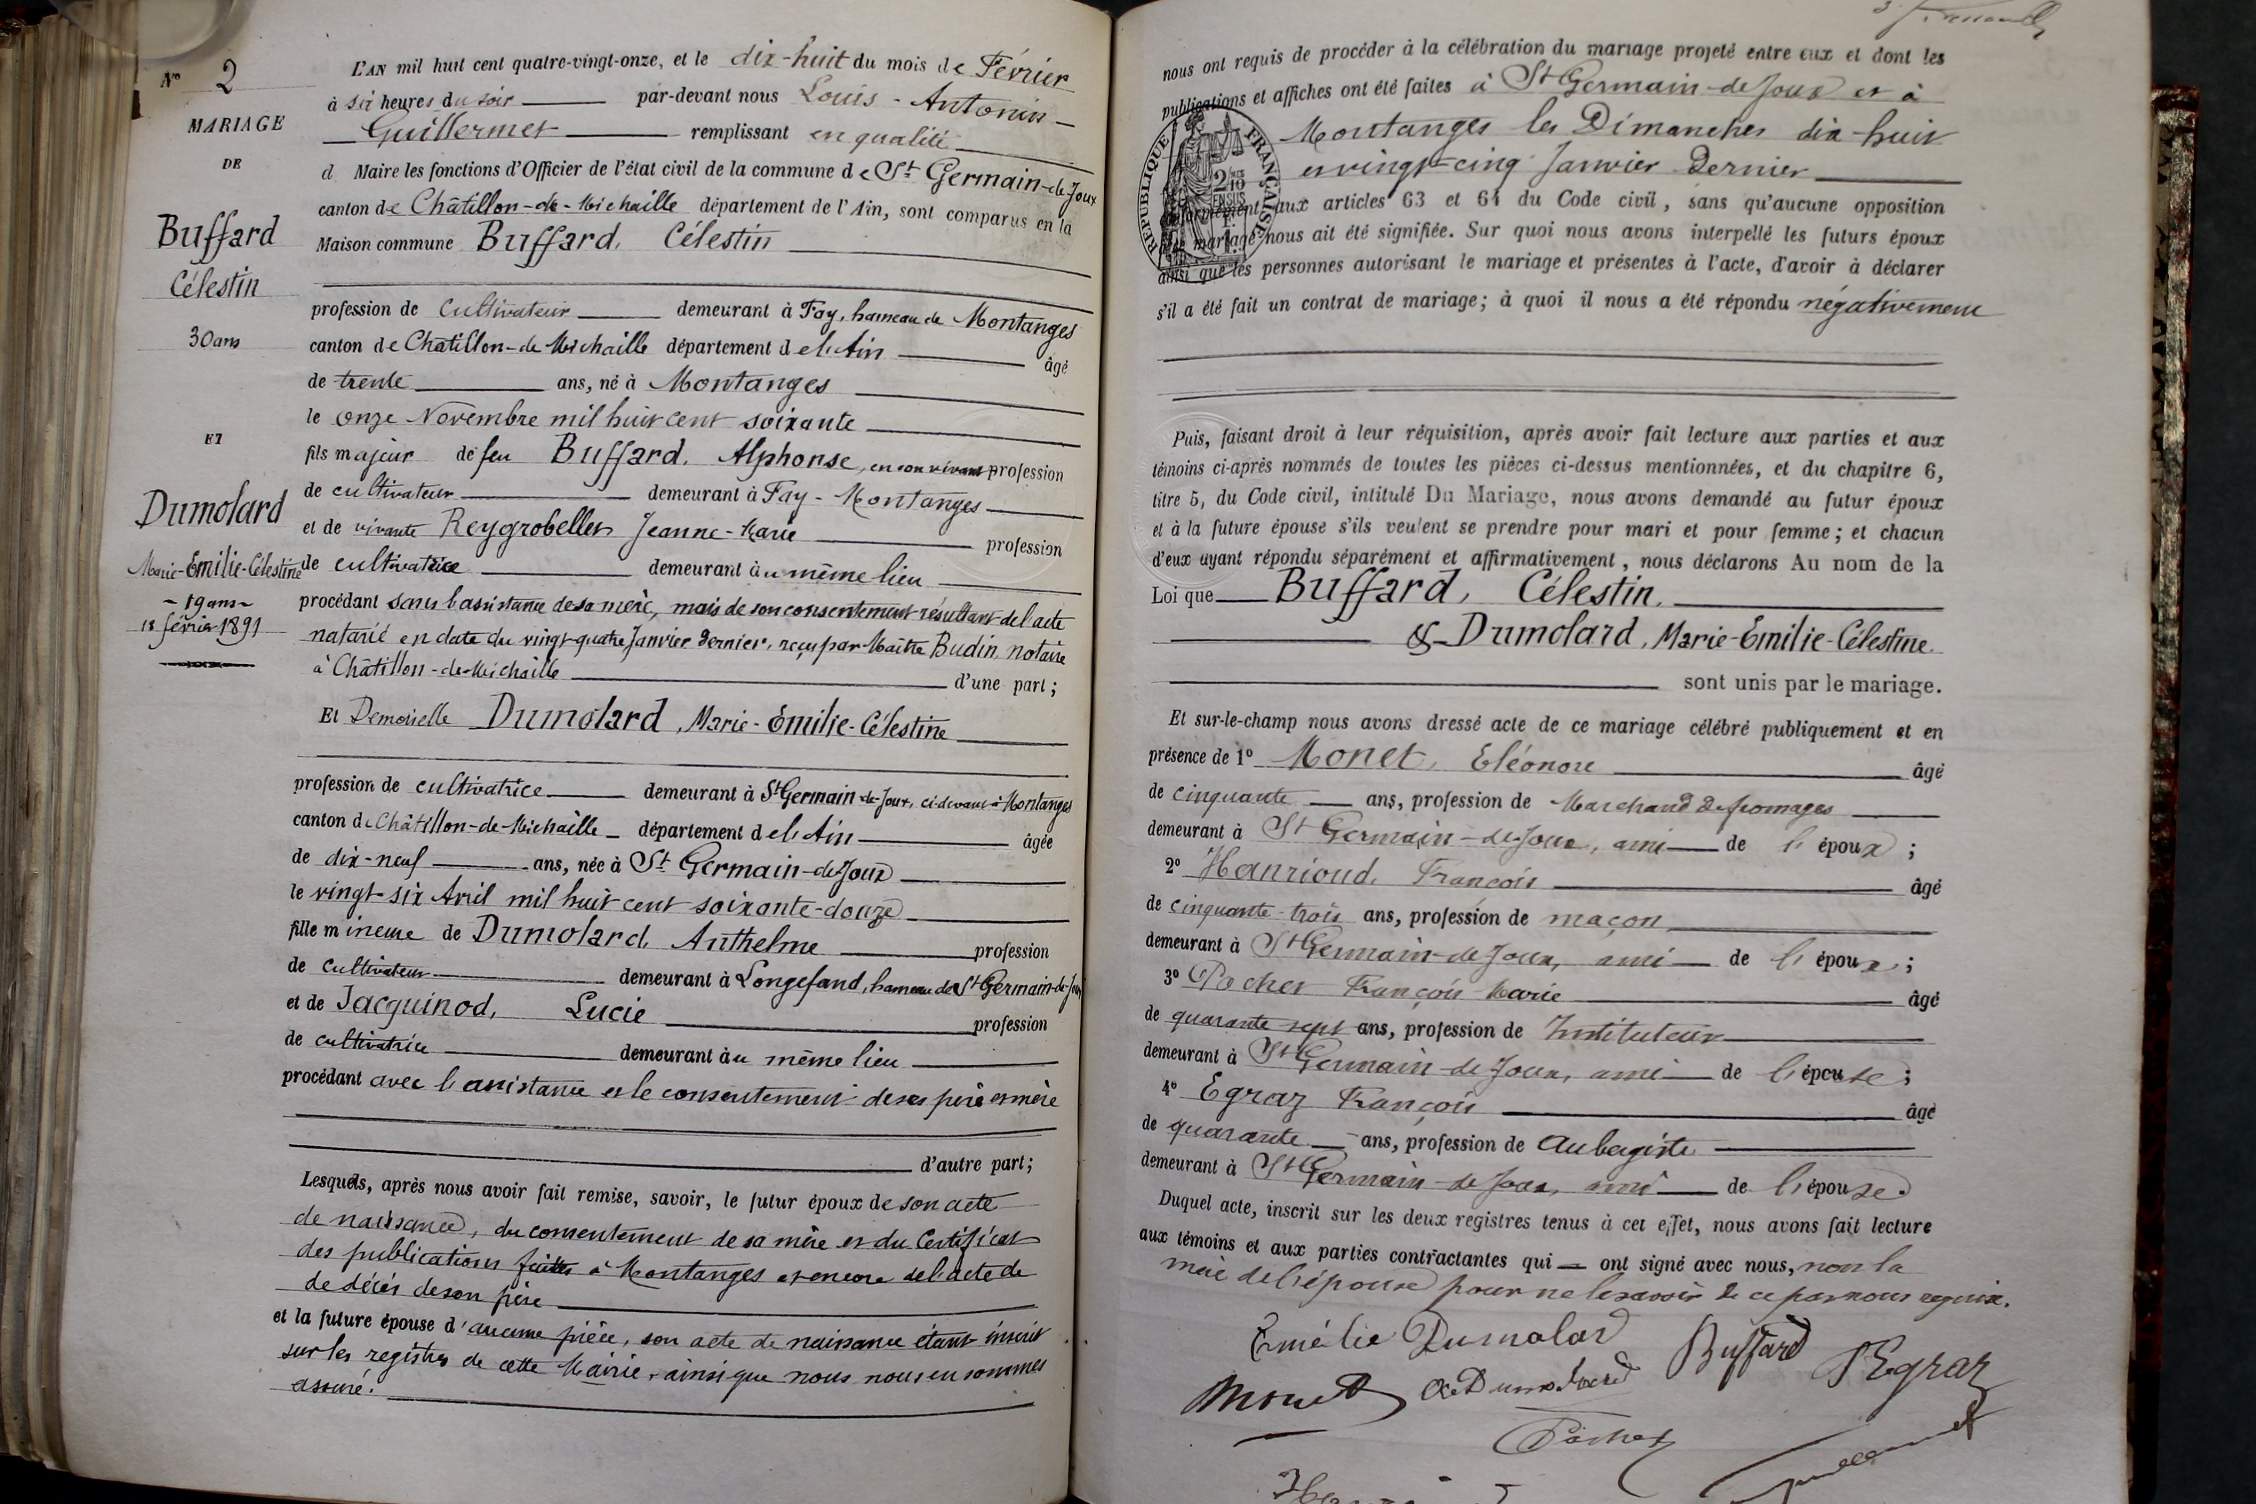 N° 2
MARIAGE
DE
Buffard
Célestin
30 ans
ET
Dumolard
Marie-Emilie-Célestine
- 19 ans -
18 février 1891
L'AN mil huit cent quatre-vingt-onze, et le dix-huit du mois de Février
à six heures du soir par-devant nous Louis-Antonin
Guillermet remplissant en qualité
d Maire les fonctions d'Officier de l'état civil de la commune de St Germain-de-Joux
canton de Châtillon-de-Michaille département de l'Ain, sont comparus en la
Maison commune Buffard, Célestin
profession de cultivateur demeurant à Fay, hameau de Montanges
canton de Chatillon-de-Michaille département de l'Ain âgé
de trente ans, né à Montanges
le onze Novembre mil huit cent soixante
fils majeur de feu Buffard, Alphonse, en son vivant profession
de cultivateur demeurant à Fay-Montanges
et de vivante Reygrobellet Jeanne-Marie profession
de cultivatrice demeurant au même lieu
procédant sans l'assistance de sa mère, mais de son consentement résultant de l'acte
notarié en date du vingt-quatre Janvier dernier, reçu par Maître Budin, notaire
à Châtillon-de-Michaille d'une part;
Et Demoiselle Dumolard, Marie-Emilie-Célestine
profession de cultivatrice demeurant à St Germain-de-Joux, ci-devant à Montanges
canton de Châtillon-de-Michaille département de l'Ain âgée
de dix-neuf ans, née à St Germain-de-Joux
le vingt-six Avril mil huit cent soixante-douze
fille mineure de Dumolard, Anthelme profession
de cultivateur demeurant à Longefand, hameau de St Germain-de-Joux
et de Jacquinod, Lucie profession
de cultivatrice demeurant au même lieu
procédant avec l'assistance et le consentement de ses père et mère
d'autre part;
Lesquels, après nous avoir fait remise, savoir, le futur époux de son acte
de naissance, du consentement de sa mère et du Certificat
des publications faites à Montanges et encore de l'acte de
de décès de son père
et la future épouse d'aucune pièce, son acte de naissance étant inscrit
sur les registres de cette Mairie, ainsi que nous nous en sommes
assuré.
nous ont requis de procéder à la célébration du mariage projeté entre eux et dont les
publications et affiches ont été faites à St Germain-de-Joux et à
Montanges les Dimanches dix-huit
et vingt-cinq Janvier dernier
RÉPUBLIQUE FRANÇAISE
conformément aux articles 63 et 64 du Code civil, sans qu'aucune opposition
mariage nous ait été signifiée. Sur quoi nous avons interpellé les futurs époux
ainsi que les personnes autorisant le mariage et présentes à l'acte, d'avoir à déclarer
s'il a été fait un contrat de mariage; à quoi il nous a été répondu négativement
Puis, faisant droit à leur réquisition, après avoir fait lecture aux parties et aux
témoins ci-après nommés de toutes les pièces ci-dessus mentionnées, et du chapitre 6,
titre 5, du Code civil, intitulé Du Mariage, nous avons demandé au futur époux
et à la future épouse s'ils veulent se prendre pour mari et pour femme; et chacun
d'eux ayant répondu séparément et affirmativement, nous déclarons Au nom de la
Loi que Buffard, Célestin,
& Dumolard, Marie-Emilie-Célestine.
sont unis par le mariage.
Et sur-le-champ nous avons dressé acte de ce mariage célébré publiquement et en
présence de 1° Monet, Eléonore âgé
de cinquante ans, profession de Marchand de fromages
demeurant à St Germain-de-Joux, ami de l'époux;
2° Hanrioud, François âgé
de cinquante-trois ans, profession de maçon
demeurant à St Germain-de-Joux, ami de l'époux;
3° Pochet François-Marie âgé
de quarante sept ans, profession de Instituteur
demeurant à St Germain-de-Joux, ami de l'épouse;
4° Egraz François âgé
de quarante ans, profession de Aubergiste
demeurant à St Germain-de-Joux, ami de l'épouse.
Duquel acte, inscrit sur les deux registres tenus à cet effet, nous avons fait lecture
aux témoins et aux parties contractantes qui ont signé avec nous, non la
mère de l'épouse pour ne le savoir de ce par nous requise.
Emélie Dumolard Buffard Egraz
Monet Dumolard
Pochet